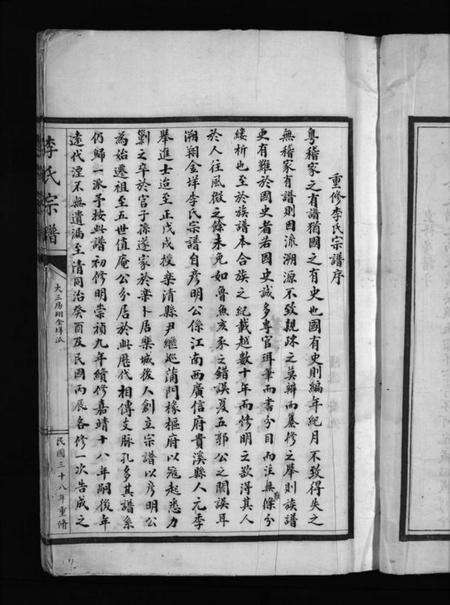 重修李氏宗譜序
粵稽家之有譜猶國之有史也國有史則編年紀月不致得失之
無稽家有譜則因流溯源不致親疎之莫辨而纂修之舉則族譜
史有難於國史者若國史誠多專官珥筆而書分目而注無條分
縷析也至於族譜本合族之紀載越數十年而修明之欲得其人
於人往風微之餘未免如魯魚亥豕之錯誤夏五郭公之闕誤耳
溯翔金垟李氏宗譜自彥明公係江南西廣信府貴溪縣人元季
舉進士造至正戊戌授樂清縣尹繼巡蒲門掾樞府以寇起悉力
劉之卒於官子孫遂家於樂卜居樂城後人創立宗譜以彥明公
為始遷祖至五世值庵公分居於此歷代相傳支脈孔多其譜系
仍歸一派予按此譜初修明崇禎九年續修嘉靖十八年嗣後年
遠代湮不無遺漏至清同治癸酉及民國丙辰各修一次告成之
李氏宗譜
大三房翔金垟派
民國三十八年重脩